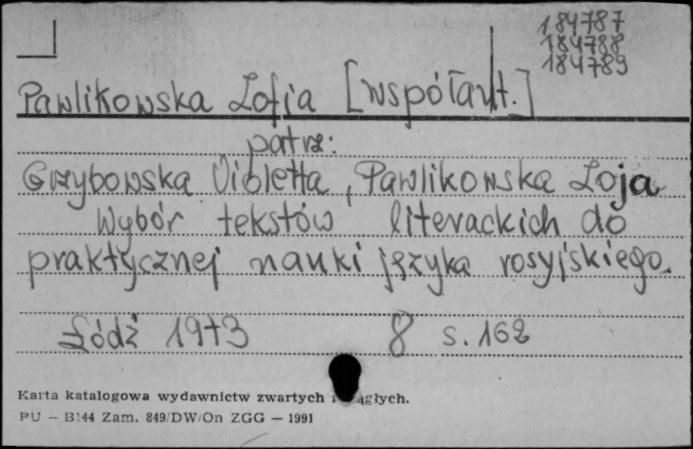 184787
184788
184789
Pawlikowska Zofia [współaut.]
patrz:
Grzybowska Violetta, Pawlikowska Zoja
Wybór tekstów literackich do
praktycznej nauki języka rosyjskiego.
Łódź 1973 8 s. 162
Karta katalogowa wydawnictw zwartych i ciągłych.
PU – B144 Zam. 849/DW/On ZGG — 1991